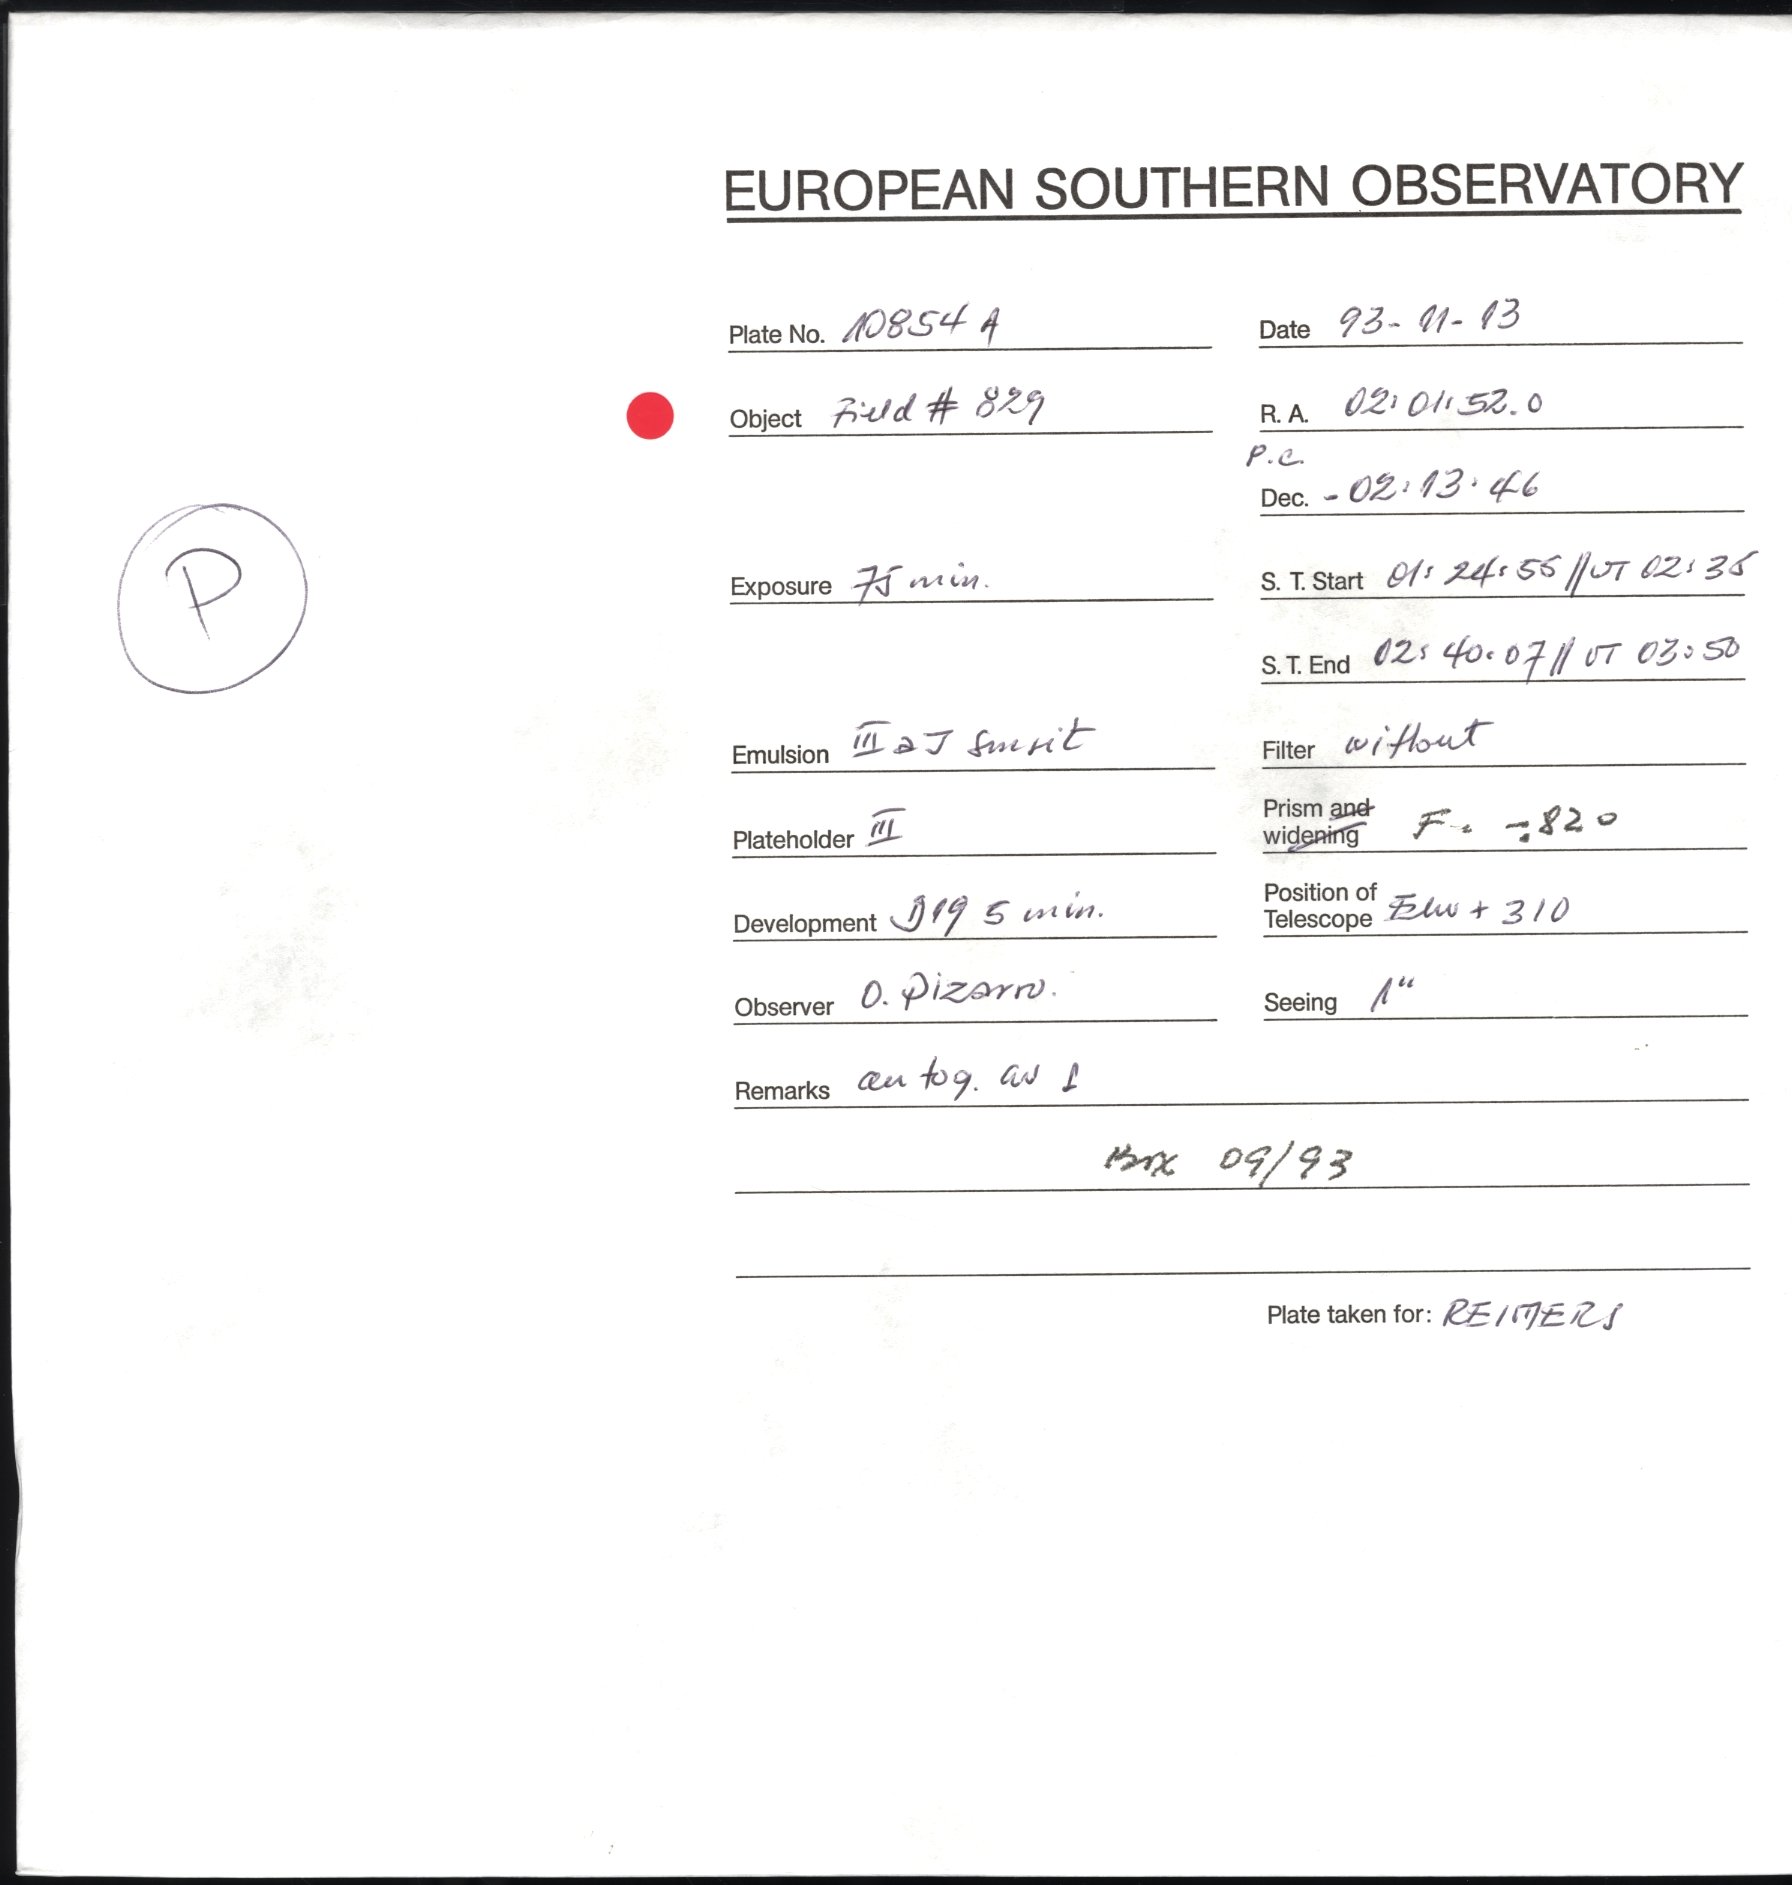 EUROPEAN SOUTHERN OBSERVATORY
Plate No. 10854 A Date 93-11-13
Object Field # 829 R. A. 02:01:52.0
P.C.
Dec. -02:13:46
P
Exposure 75 min. S. T. Start 01:24:55 // UT 02:35
S. T. End 02:40:07 // UT 03:50
Emulsion III a J sensit Filter without
Plateholder III Prism and widening F. -.820
Development D19 5 min. Position of Telescope + 310
Observer O. Pizarro. Seeing 1"
Remarks au tog.
Box 09/93
Plate taken for: REIMERS